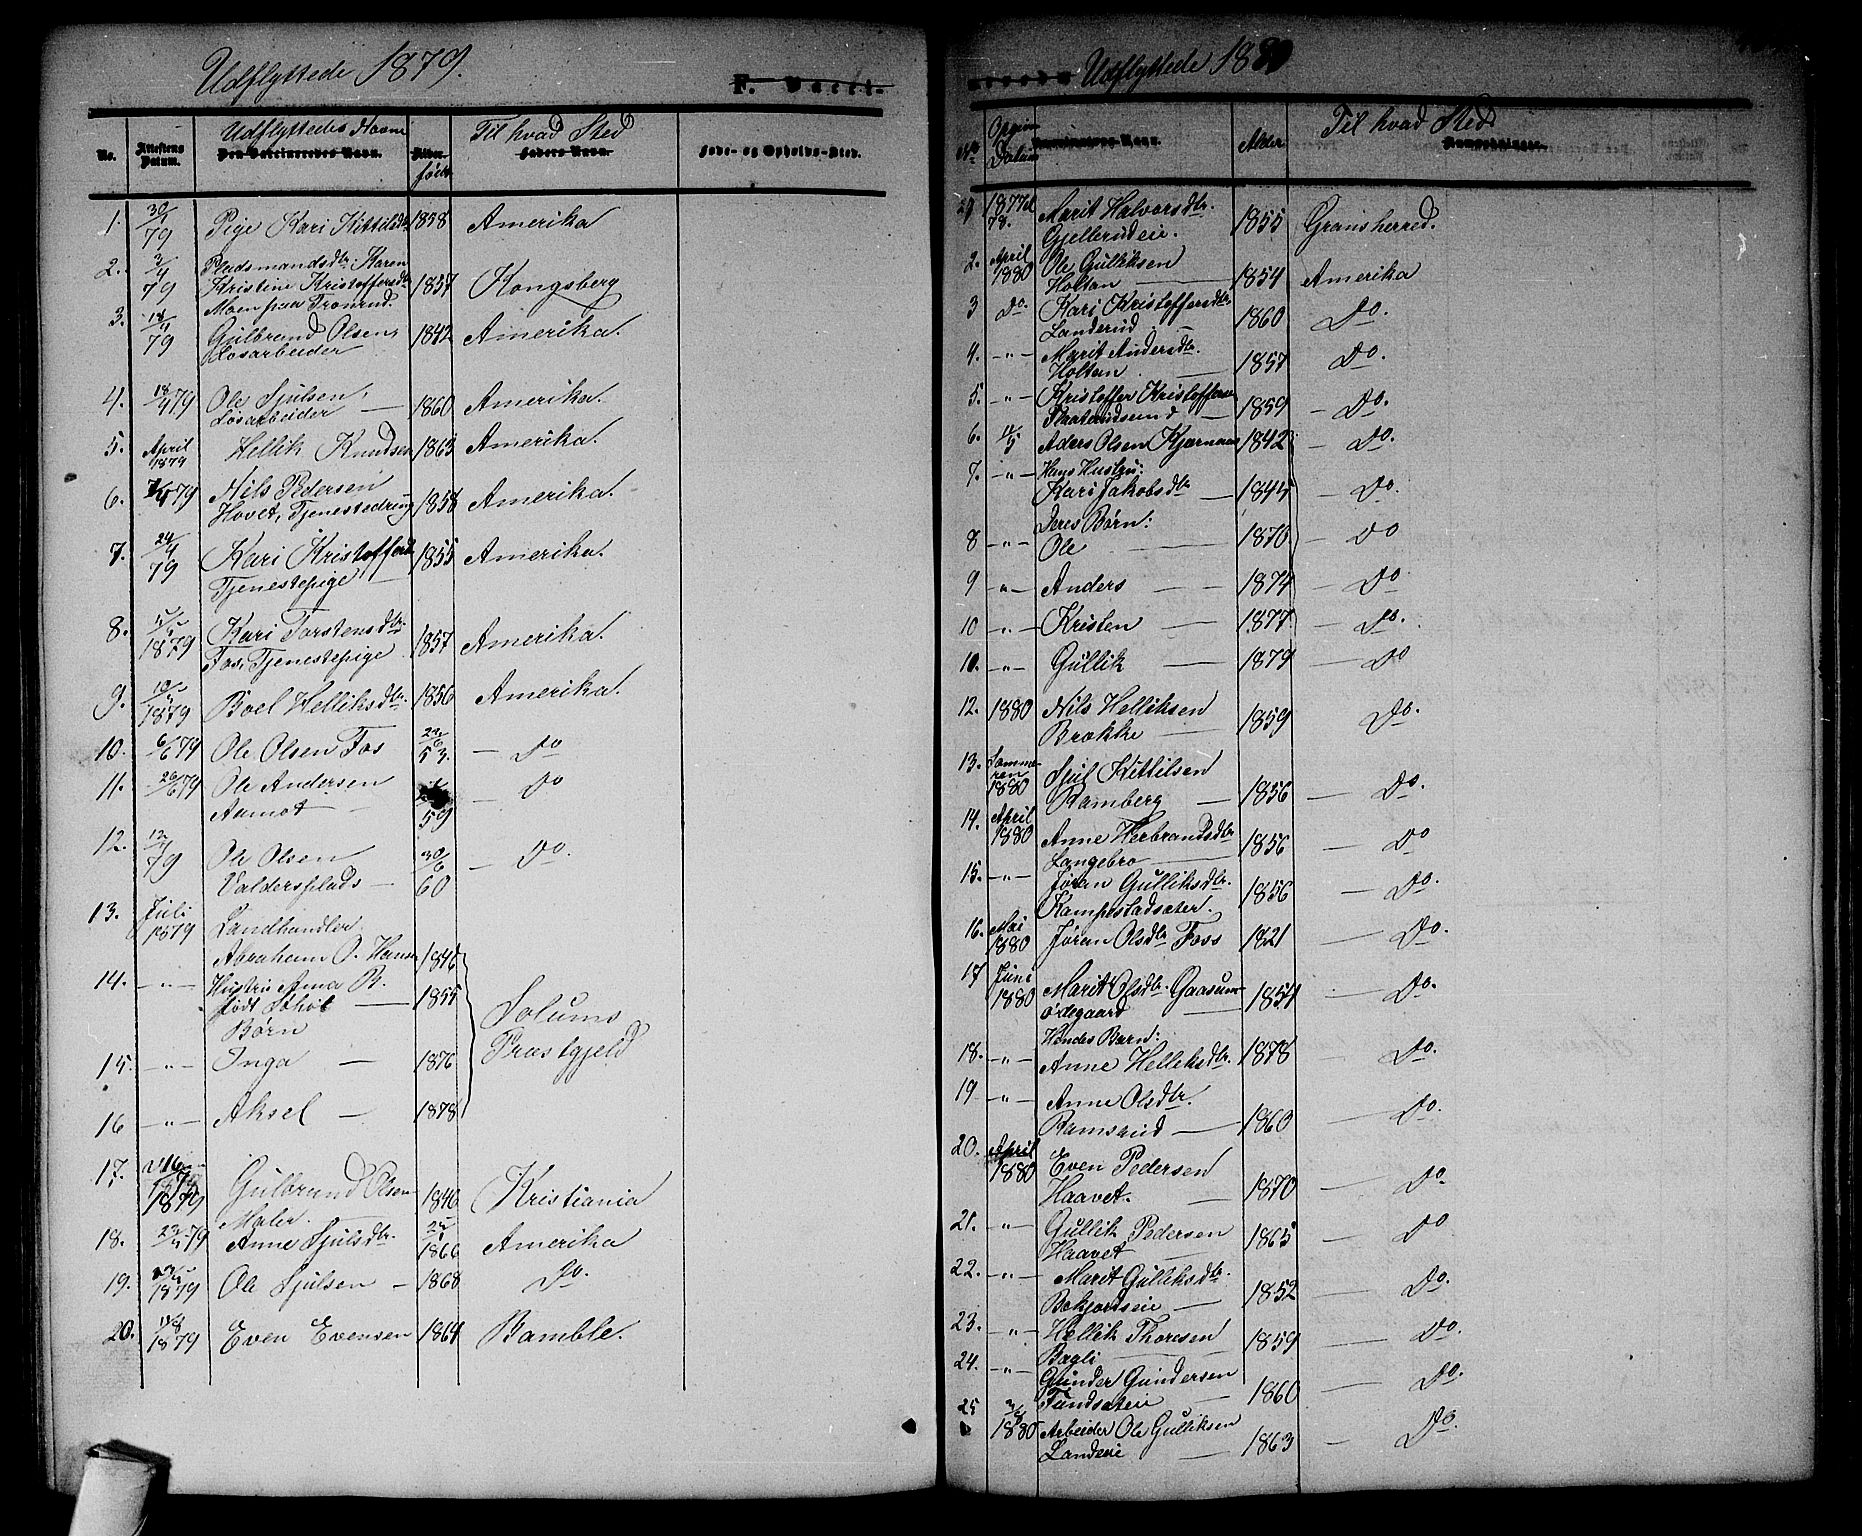 Udflyttede 1879.
F. Vacci-
No.
Attestens Datum.
Udflyttedes Navne
Den Vaccineredes Navn.
Alder
født
Til hvad Sted
Faders Navn.
Føde- og Opholds-Sted.
1. 30/1 79 Pige Kari Kittilsdtr 1858 Amerika
2. 3/4 79 Pladsmandsdtr. Karen
Kristine Kristoffersdtr 1857 Kongsberg
Moen paa Tronrud.
3. 18/4 79 Gulbrand Olsen, 1842 Amerika.
Løsarbeider
4. 18/4 79 Ole Sjulsen, 1860 Amerika.
Løsarbeider
5. April 1879 Hellik Knudsen 1863 Amerika.
6. 79 Nils Pedersen
Hovet, Tjenestedreng 1858 Amerika.
7. 24/4 79 Kari Kristoffersd 1855 Amerika.
Tjenestepige
8. 1879 Kari Torstensdtr. 1857 Amerika.
Fos, Tjenestepige
9. 10/5 1879 Boel Helliksdtr. 1856 Amerika.
10. 6/6 79 Ole Olsen Fos 22/6 53. — Do
11. 26/6 79 Ole Andersen 59 — Do
Aamot
12. 79 Ole Olsen 30/6 60 — Do.
Valdersplads
13. Juli 1879 Landhandler
Abraham O. Hansen 1846
14. — " — Hustru Anna B. 1855 Solums
født
Børn Præstgjeld
15. — " — Inga — 1876
16 — " — Aksel — 1878
17. 1879 Gulbrand Olsen 1846 Kristiania
Maler.
18. 79 Anne Sjulsdtr. 1866 Amerika
19. 1879 Ole Sjulsen — 1868 Do.
20. 1879 Even Evensen 1864 Bamble.
Udflyttede 1880
No
Opgivn Datum
Alder
Til hvad Sted.
Anmærkninger.
1877 78. Marit Halvorsdtr. 1855 Gransherred.
Gjellerudeie.
2. April 1880 Ole Gulliksen
Holtan — 1854 Amerika
3 Do. Kari Kristoffersdtr. 1860 Do.
Landerud
4. — " — Marit Andersdtr. 1857 Do.
Holtan
5. — " — Kristoffer Kristoffersen 1859 Do.
6. Aders Olsen Kjørnaas 1842 — Do.
7. — " — Hans Hustru:
Kari Jakobsdtr — 1845 — Do.
Deres Børn:
8 — " — Ole — 1870 — Do
9 — " — Anders — 1874 — Do.
10 — " — Kristen — 1877 — Do.
10. — " — Gullik — 1879 — Do
12. 1880 Nils Helliksen 1859 Do.
Brække
13. Sommeren 1880 Sjul Kittilsen
Ramberg — 1856 — Do.
14. April 1880 Anne Herbrandsdtr 1856 — Do
Langebro
15. — " — Jøran Gulliksdtr. 1856 — Do.
Kampestadsæter.
16. Mai 1880 Jøran Olsdtr Foss 1821 — Do.
17 Juni 1880 Marit Olsdtr. Gaasum- 1854 — Do.
ødegaard
Hendes Barn:
18. — " — Anne Helliksdtr. 1878 — Do.
19 — " — Anne Olsdtr.
Ramsrud — 1860 — Do.
20. April 1880 Even Pedersen
Haavet. — 1870 — Do.
21. — " — Gullik Pedersen 1865 — Do
Haavet
22. — " — Marit Gulliksdtr. 1852 — Do.
23. — " — Hellik Thoresen 1859 — Do.
Bagli
24. — " — Gunder Gundersen 1860 — Do.
25 1880 Arbeider Ole Gulliksen
Landeeie — 1863 — Do.